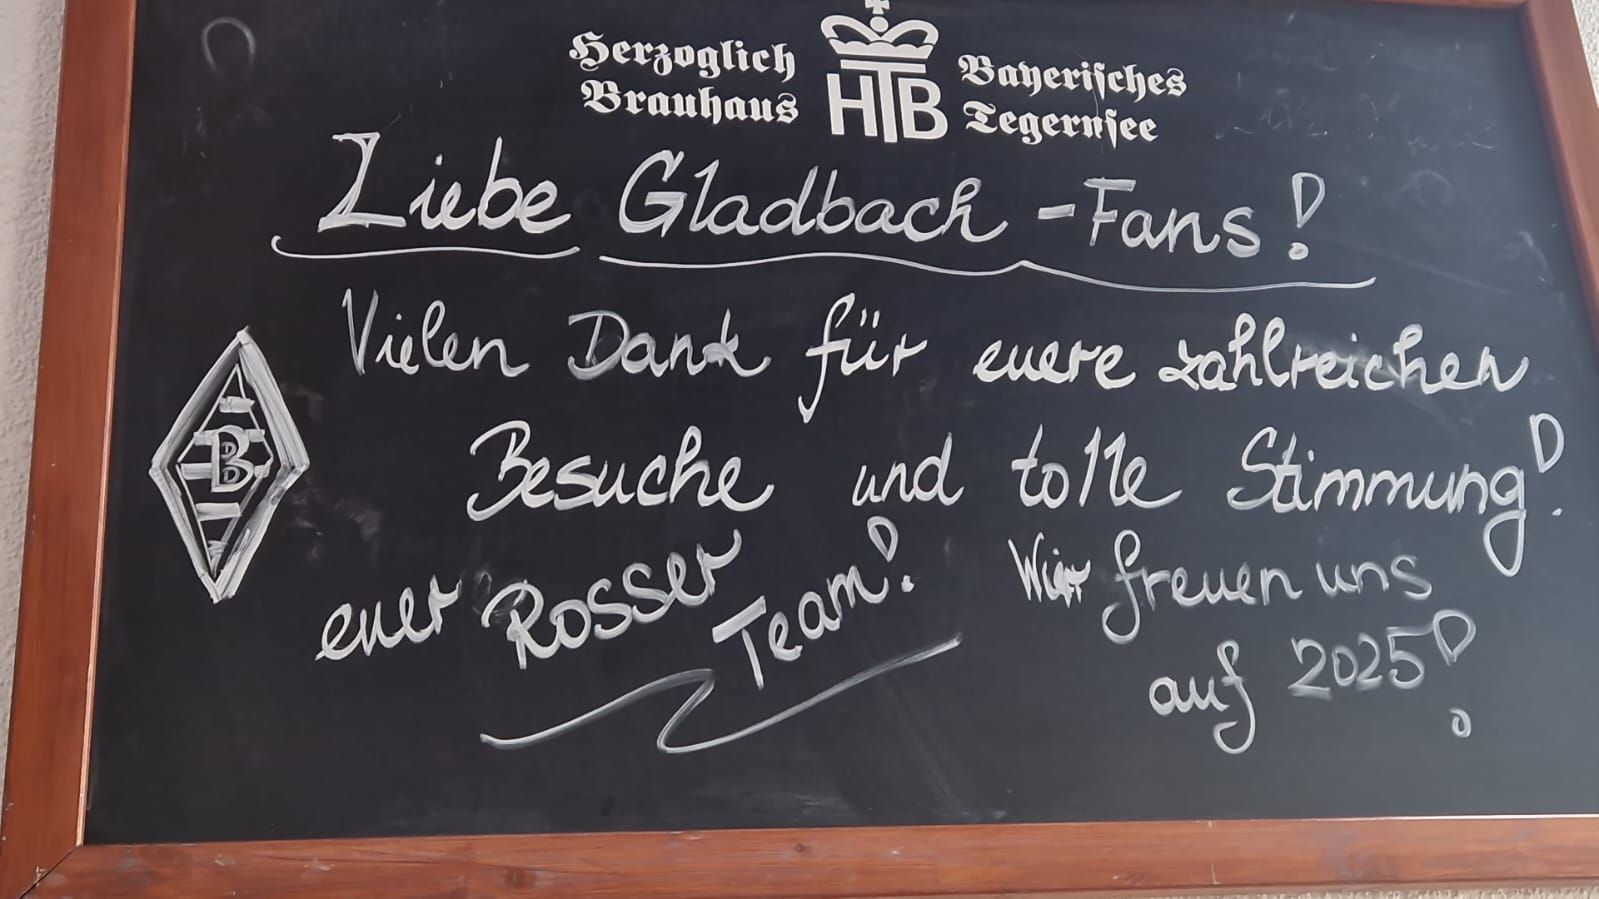 Herzoglich Bayerisches
Brauhaus HTB Tegernsee
Liebe Gladbach-Fans!
Vielen Dank für euere zahlreichen
Besuche und tolle Stimmung!
B
euer Rosser Team!
Wir freuen uns
auf 2025!